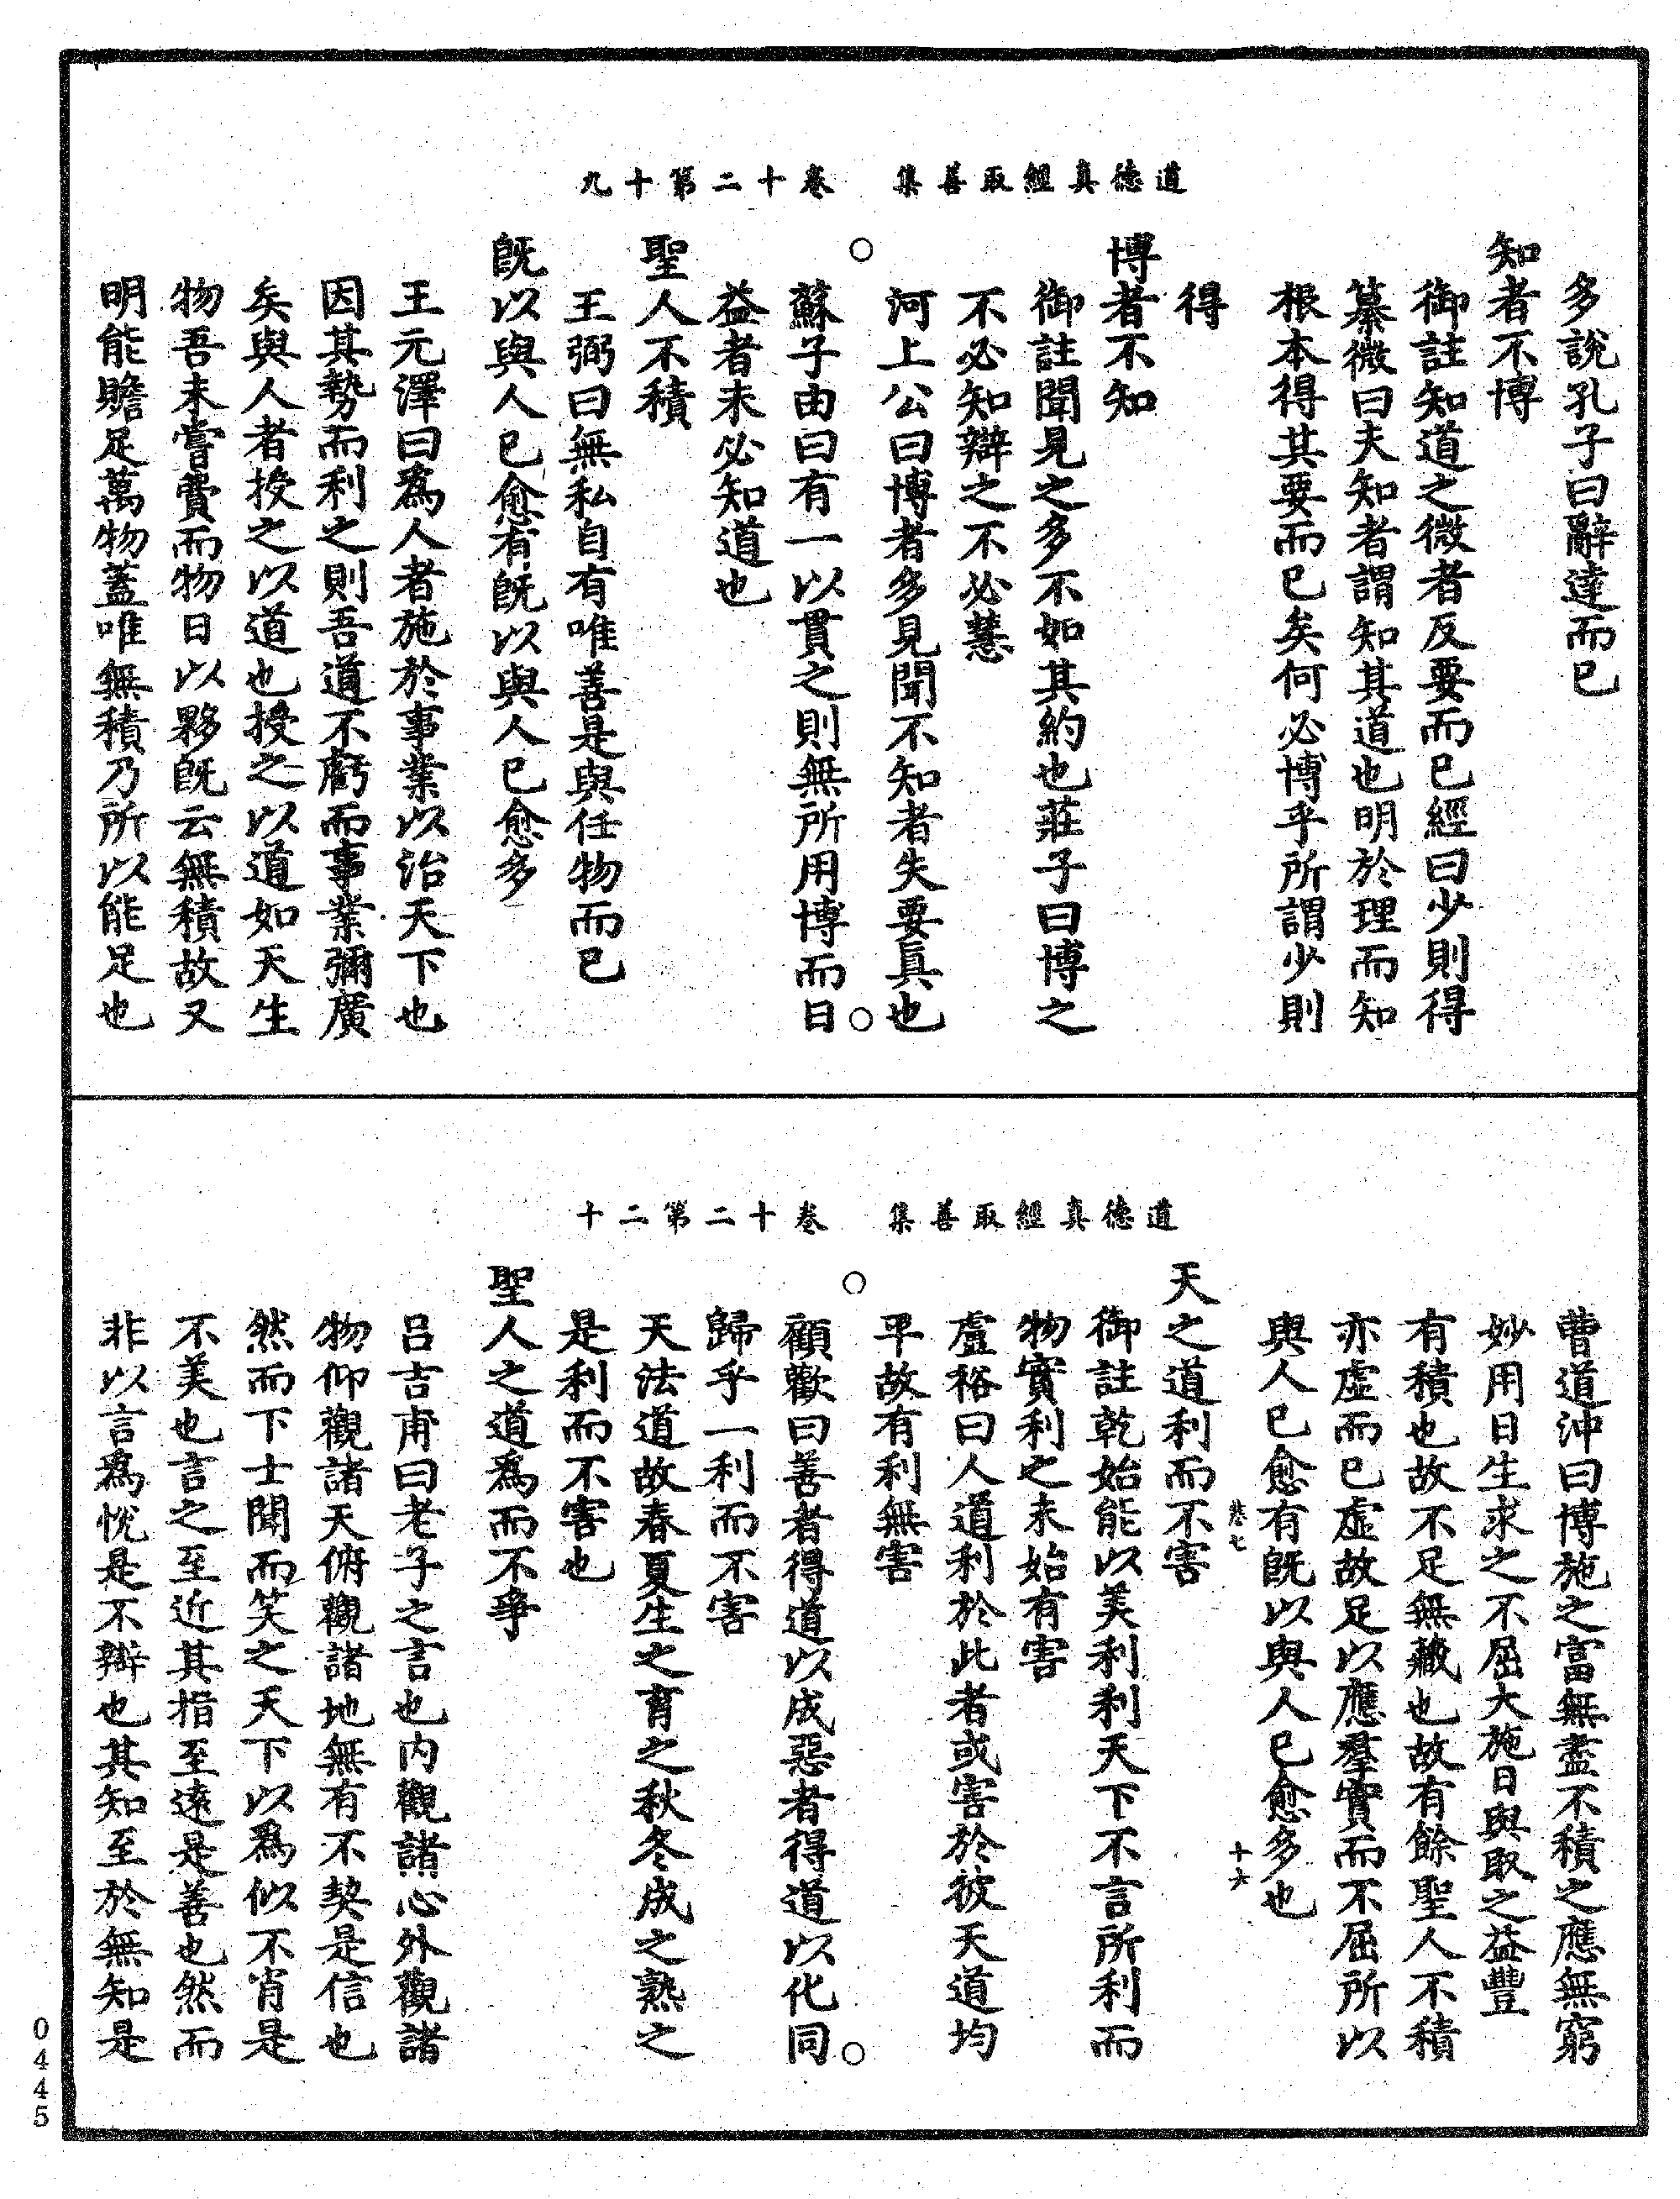 道德真經取善集　卷十二第十九
多說孔子曰辭達而已
知者不博
御註知道之微者反要而已經曰少則得
纂微曰夫知者謂知其道也明於理而知
根本得其要而已矣何必博乎所謂少則
得
博者不知
御註聞見之多不如其約也莊子曰博之
不必知辯之不必慧
河上公曰博者多見聞不知者失要真也
蘇子由曰有一以貫之則無所用博而日
益者未必知道也
聖人不積
王弼曰無私自有唯善是與任物而已
既以與人已愈有既以與人已愈多
王元澤曰為人者施於事業以治天下也
因其勢而利之則吾道不虧而事業彌廣
矣與人者授之以道也授之以道如天生
物吾未嘗費而物日以夥既云無積故又
明能贍足萬物蓋唯無積乃所以能足也
道德真經取善集　卷十二第二十
曹道沖曰博施之富無盡不積之應無窮
妙用日生求之不屈大施日與取之益豐
有積也故不足無藏也故有餘聖人不積
亦虛而已虛故足以應羣實而不屈所以
與人已愈有既以與人已愈多也
悲七　十六
天之道利而不害
御註乾始能以美利利天下不言所利而
物實利之未始有害
盧裕曰人道利於此者或害於彼天道均
平故有利無害
顧歡曰善者得道以成惡者得道以化同
歸乎一利而不害
天法道故春夏生之育之秋冬成之熟之
是利而不害也
聖人之道為而不爭
呂吉甫曰老子之言也內觀諸心外觀諸
物仰觀諸天俯觀諸地無有不契是信也
然而下士聞而笑之天下以為似不肖是
不美也言之至近其指至遠是善也然而
非以言為悅是不辯也其知至於無知是
0445